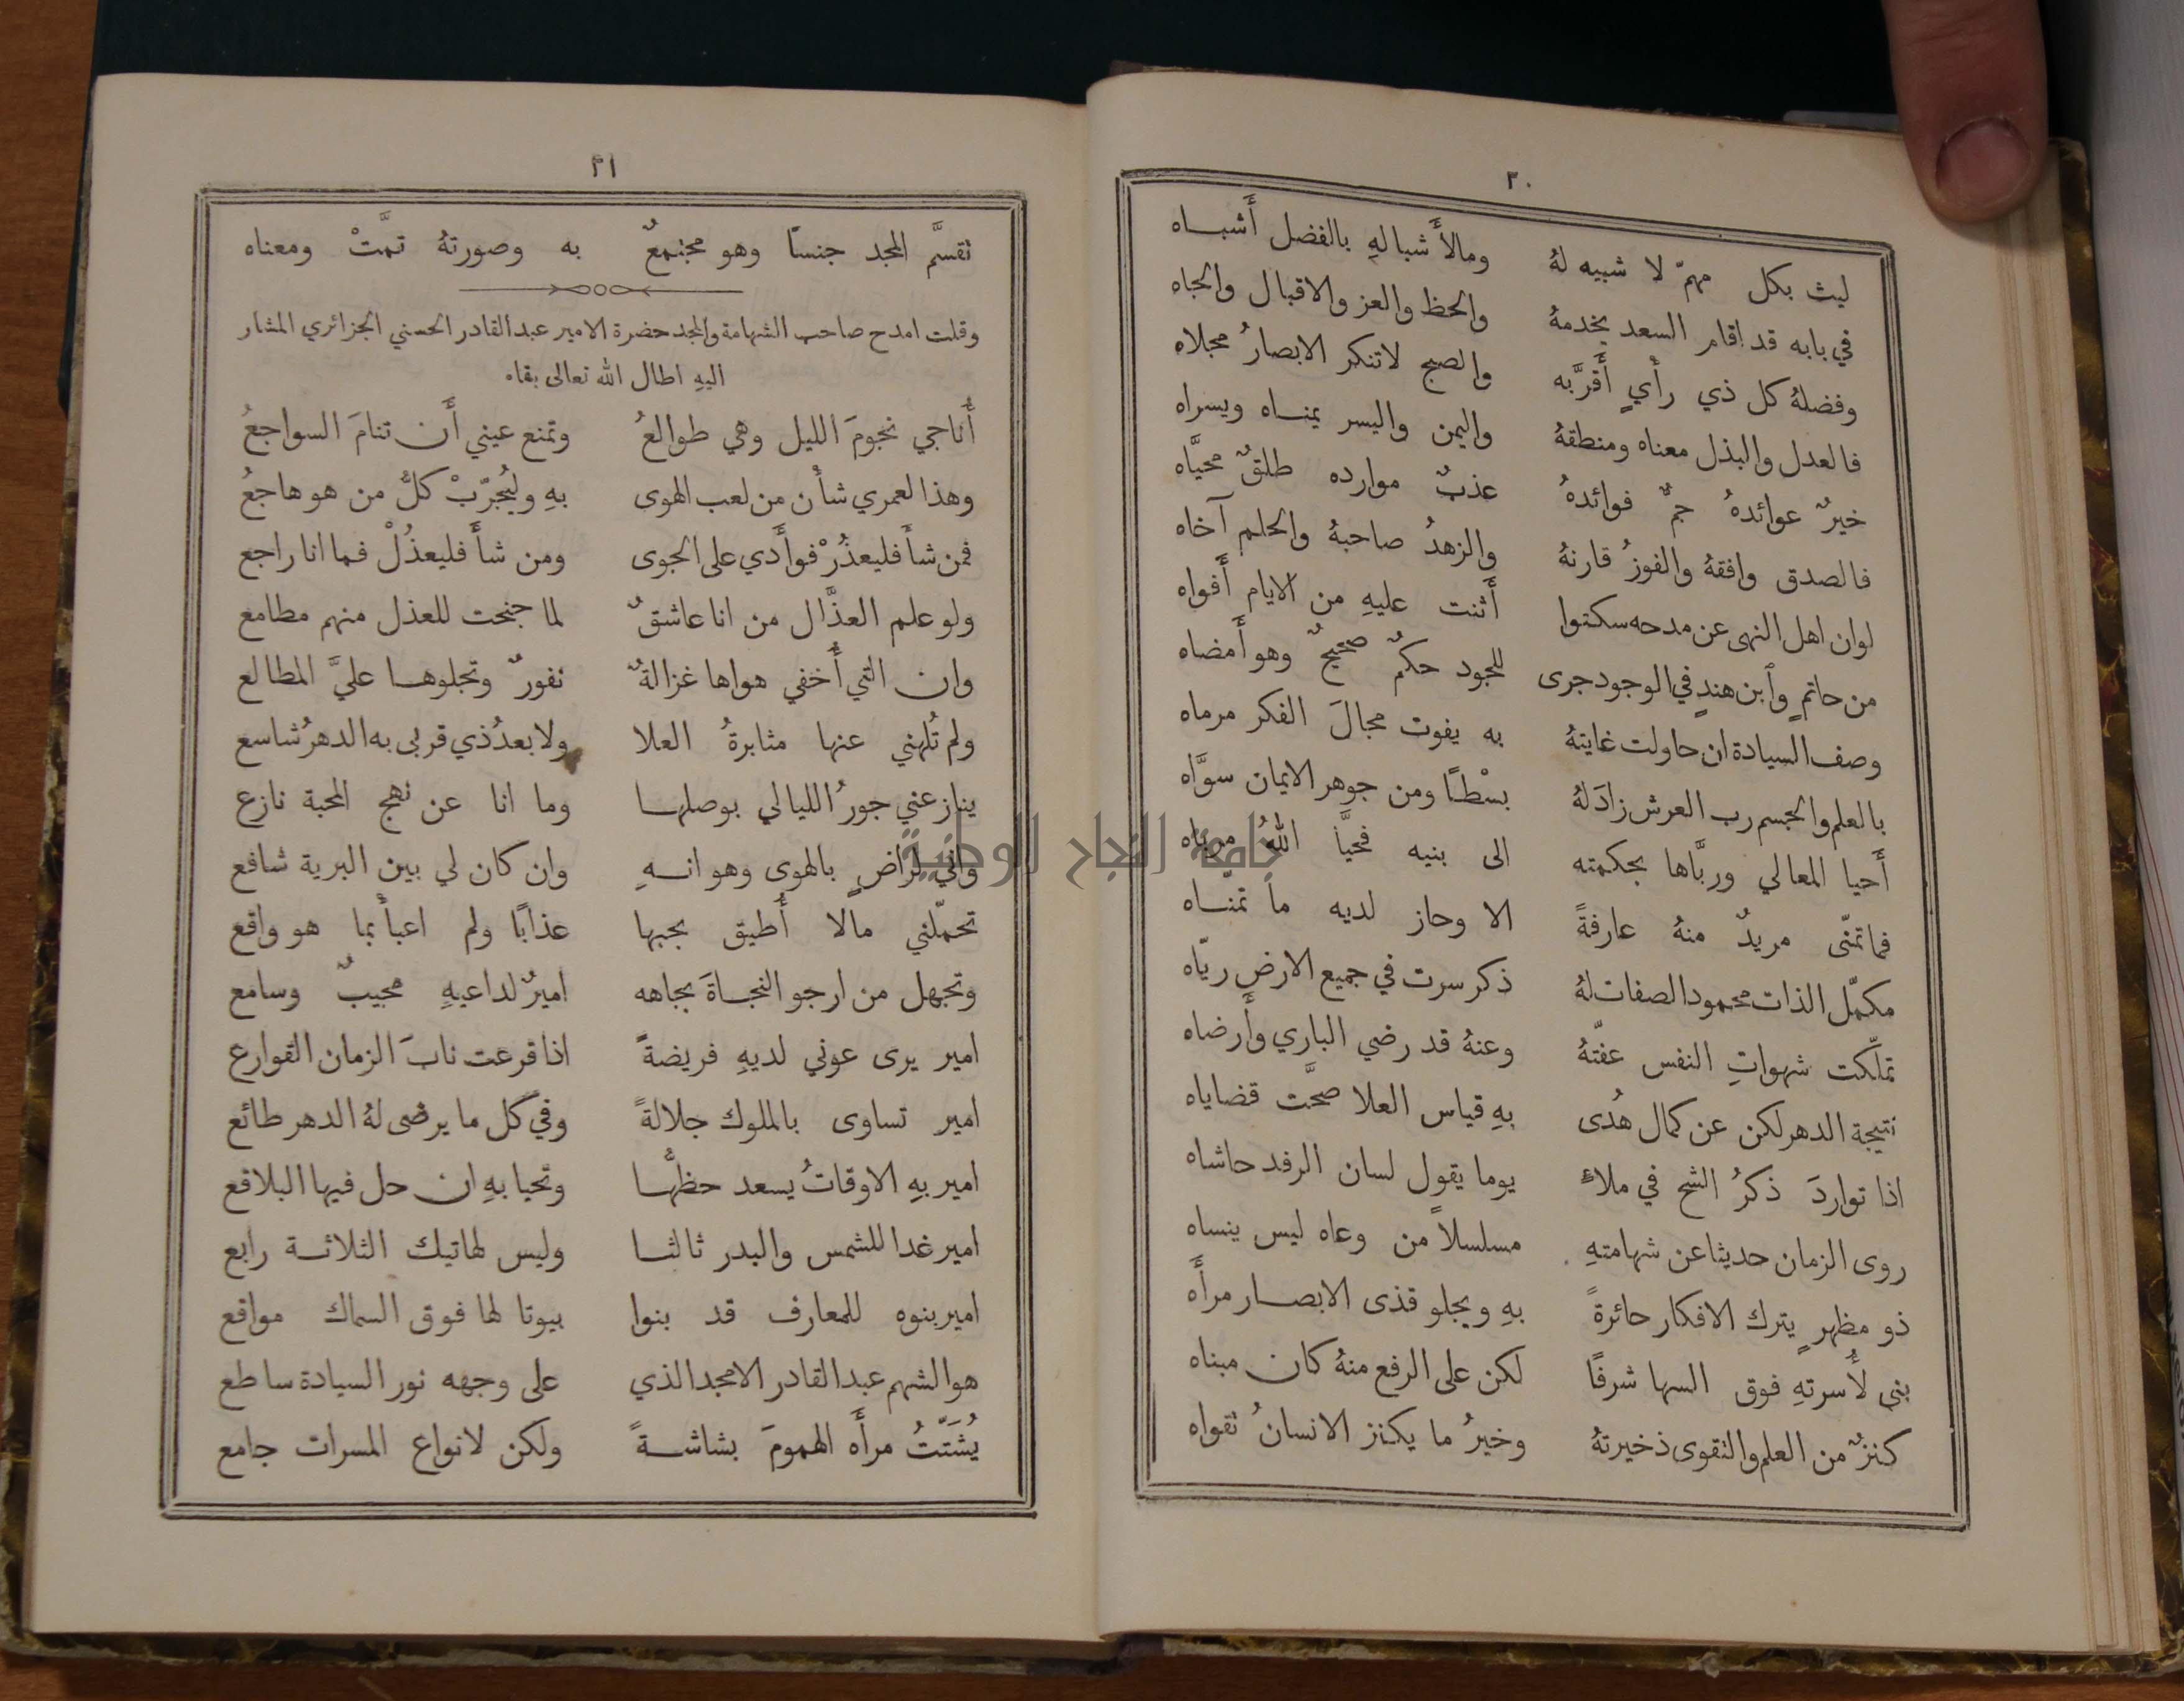 ٣٠
ليث بكل مهمّ لا شبيه لهُ ومالأَ شبالهِ بالفضل أَشباه
في بابه قد اقام السعد يخدمهُ والحظ والعز والاقبال والجاه
وفضلهُ كل ذي رأيٍ أَقرَّ به والصبح لاتنكر الابصارُ مجلاه
فالعدل والبذل معناه ومنطقهُ واليمن واليسر يمناه ويسراه
خيرٌ عوائدهُ جمٌّ فوائدهُ عذبٌ موارده طلقٌ محيَّاه
فالصدق وافقهُ والفوزُ قارنهُ والزهدُ صاحبهُ والحلم آخاه
لوان اهل النهى عن مدحه سكتوا أَثنت عليهِ من الايام أَفواه
من حاتمٍ وأبن هندٍ في الوجود جرى للجود حكمٌ صحيحٌ وهو أَمضاه
وصف السيادة ان حاولت غايتهُ به يفوت مجالَ الفكر مرماه
بالعلم والجسم رب العرش زادَ لهُ بسْطًا ومن جوهر الايمان سوَّاه
أَحيا المعالي وربَّاها بحكمته الى بنيه فحيَّا اللهُ
فماتمنّى مريدٌ منهُ عارفةً الا وحاز لديه ما تمنَّاه
مكمّل الذات محمود الصفات لهُ ذكر سرت في جميع الارض ريّاه
تملّكت شهواتِ النفس عفّتهُ وعنهُ قد رضي الباري وأَرضاه
نتيجة الدهر لكن عن كمال هُدى بهِ قياس العلا صحَّت قضاياه
اذا تواردَ ذكرُ الشح في ملاءٍ يوما يقول لسان الرفد حاشاه
روى الزمان حديثا عن شهامتهِ مسلسلاً من وعاه ليس ينساه
ذو مظهرٍ يترك الافكار حائرةً بهِ ويجلو قذى الابصار مرأَه
بنى لأُسرتهِ فوق السها شرفًا لكن على الرفع منهُ كان مبناه
كنزٌ من العلم والتقوى ذخيرتهُ وخيرُ ما يكنز الانسانُ تقواه
٣١
تقسَّم المجد جنسًا وهو مجتمعٌ به وصورتهُ تمَّتْ ومعناه
وقلت امدح صاحب الشهامة والمجد حضرة الامير عبد القادر الحسني الجزائري المشار
اليهِ اطال الله تعالى بقاه
أُناجي نجومَ الليل وهي طوالعُ وتمنع عيني أَن تنامَ السواجعُ
وهذا لعمري شأن من لعب الهوى بهِ وليُجرّبْ كلُّ من هو هاجعُ
فمن شأَ فليعذُرْ فوأَدي على الجوى ومن شأَ فليعذُلْ فما انا راجع
ولو علم العذَّال من انا عاشقٌ لما جنحت للعذل منهم مطامع
وان التي أُخفي هواها غزالةٌ نفورٌ وتجلوها عليَّ المطالع
ولم تُلهني عنها مثابرةُ العلا ولا بعدُ ذي قربى به الدهرُ شاسع
ينازعني جورُ الليالي بوصلها وما انا عن نهج المحبة نازع
واني لراضٍ بالهوى وهو انهِ وان كان لي بين البرية شافع
تحمّلني مالا أُطيق بحبها عذابًا ولم اعبأ بما هو واقع
وتجهل من ارجو النجاةَ بجاهه اميرٌ لداعيهِ مجيبٌ وسامع
امير يرى عوني لديهِ فريضةً اذا قرعت نابَ الزمان القوارع
امير تساوى بالملوك جلالةً وفي كل ما يرضى لهُ الدهر طائع
امير بهِ الاوقاتُ يسعد حظُّها وتحيا بهِ ان حل فيها البلاقع
امير غدا للشمس والبدر ثالثا وليس لهاتيك الثلاثة رابع
امير بنوه للمعارف قد بنوا بيوتا لها فوق السماك مواقع
هوالشهم عبد القادر الامجد الذي على وجهه نور السيادة ساطع
يُشَتِّتُ مرأَه الهمومَ بشاشةً ولكن لانواع المسرات جامع
جامعة النجاح الوطنية